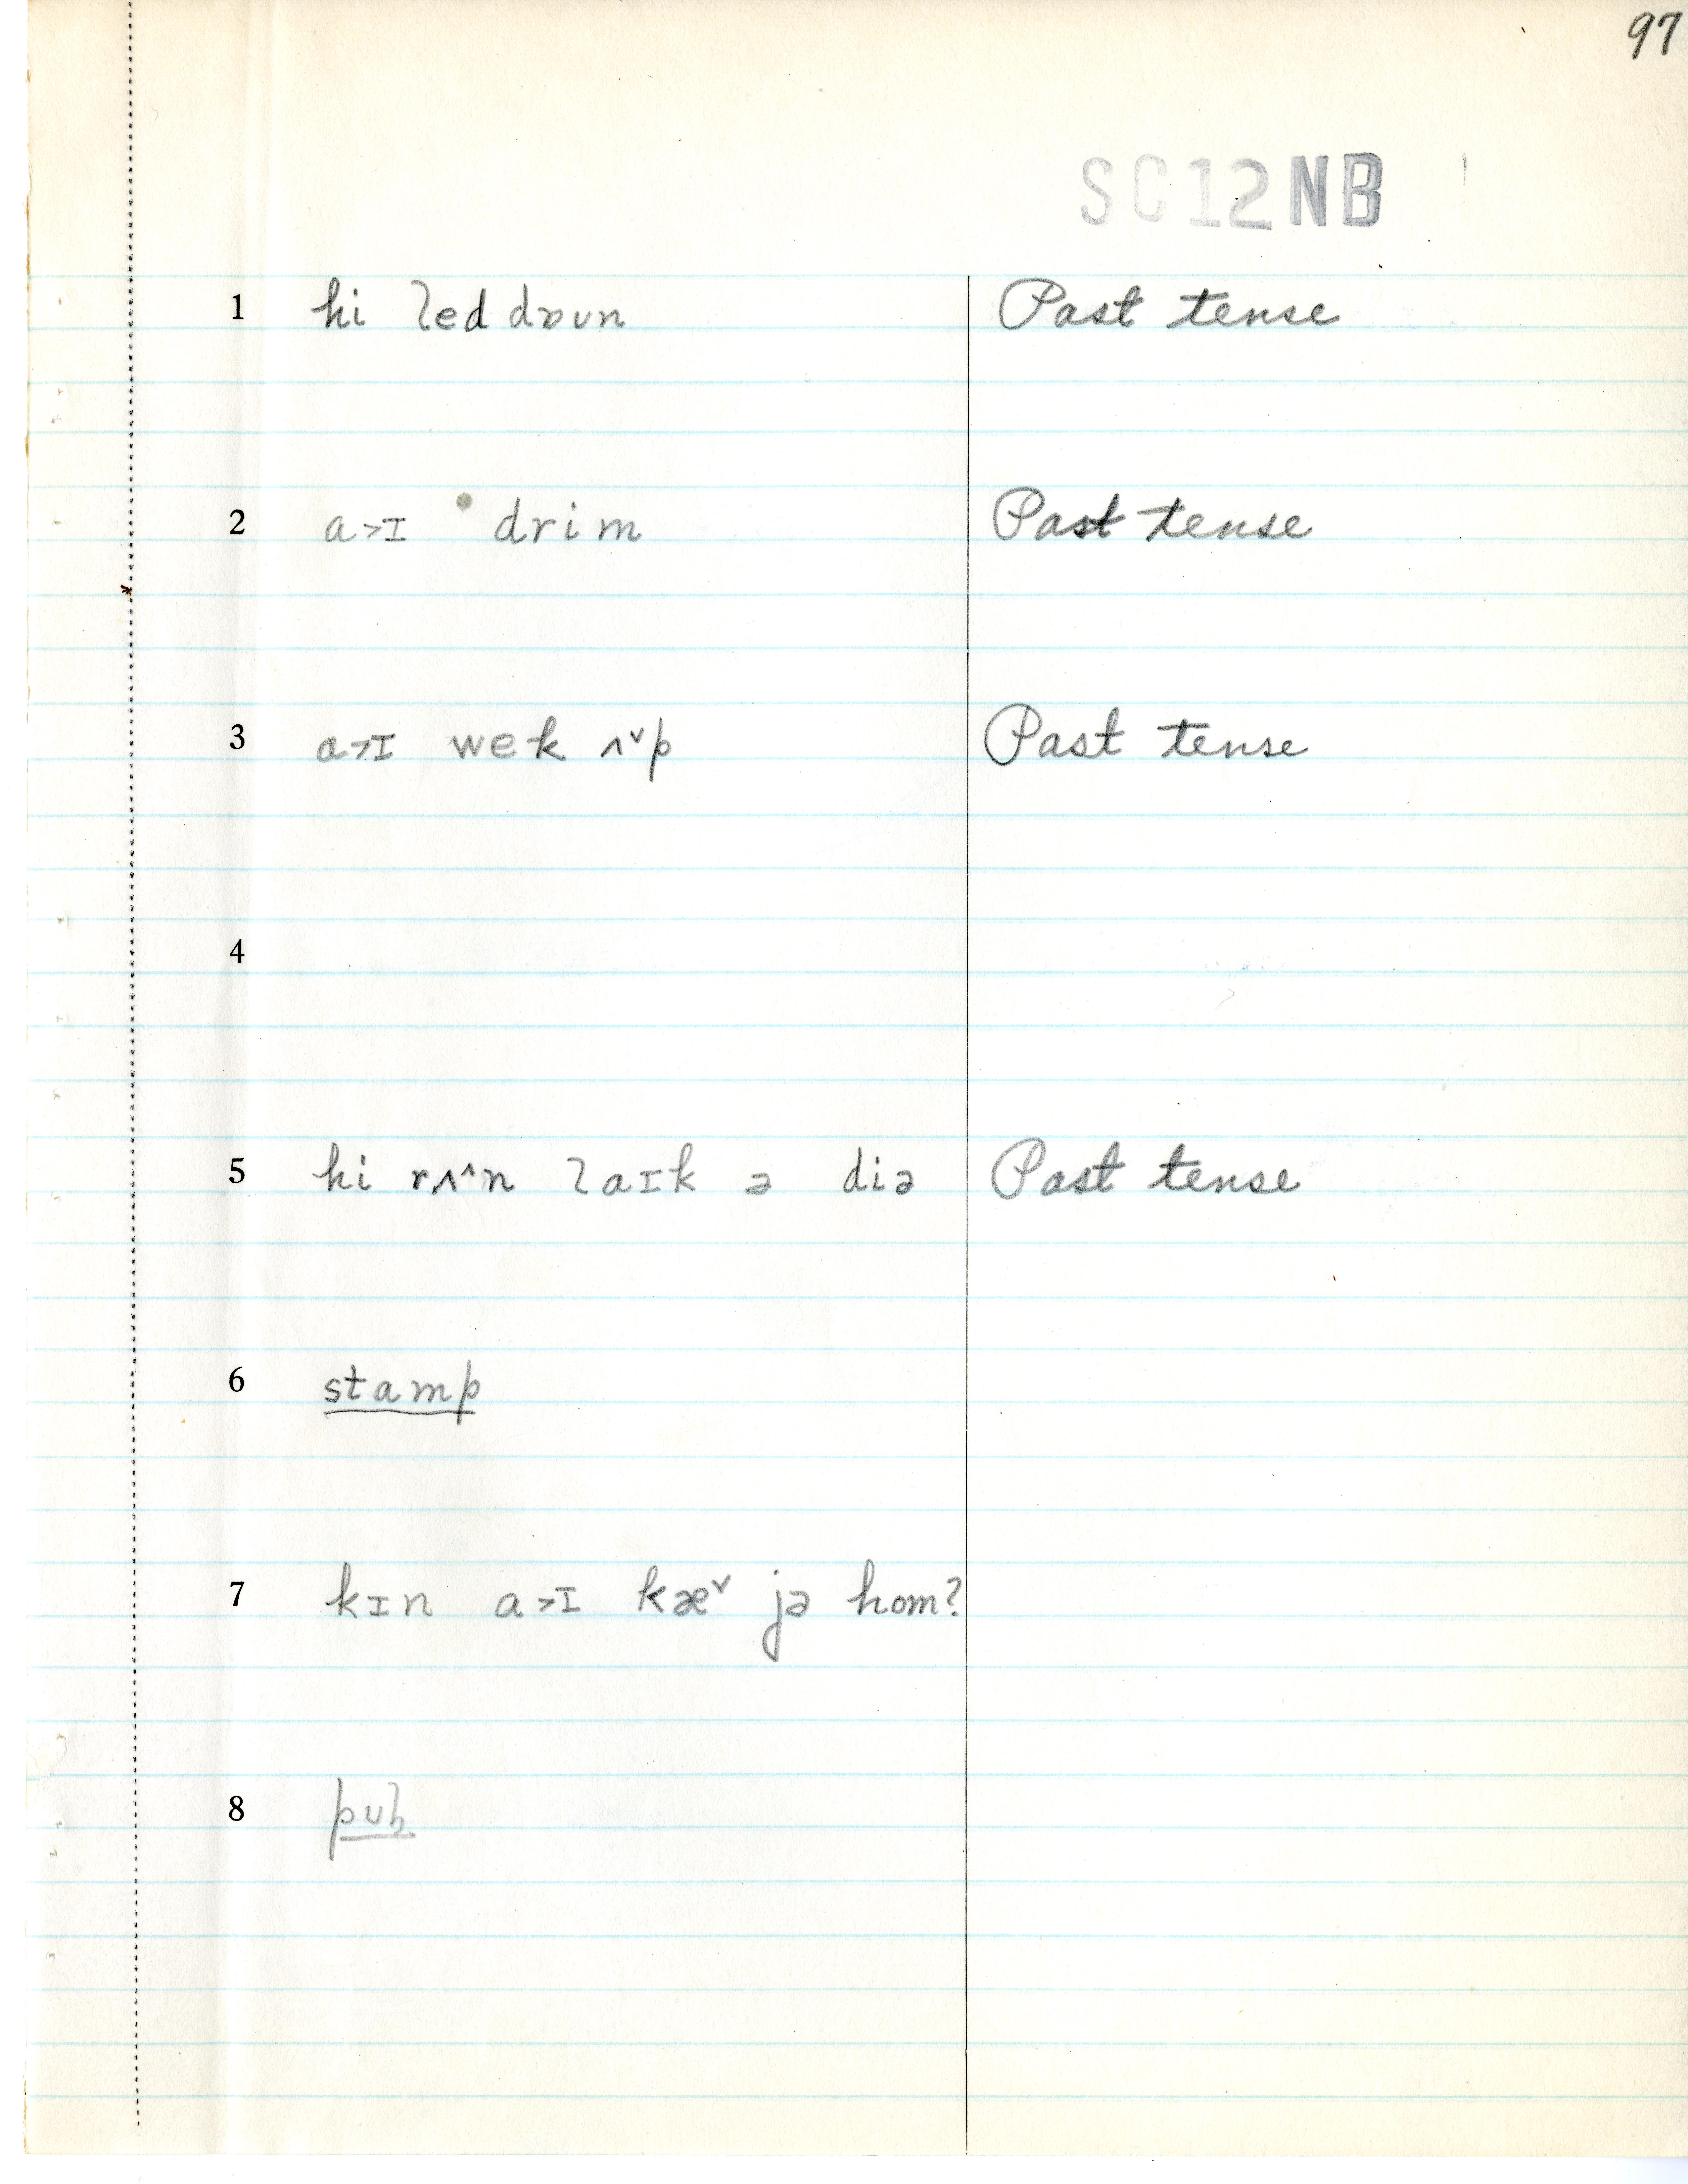 97
SC12NB
1 hi led dɒun Past tense
2 a>ɪ drim Past tense
3 a>ɪ wek ʌ˅p Past tense
4
5 hi rʌ^n laɪk ə diə Past tense
6 stamp
7 kɪn a>ɪ kæ˅ jə hom?
8